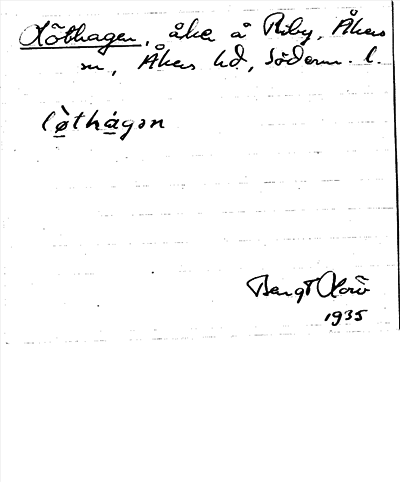 Löthagen, åker å Riby, Åkers
sn, Åkers hd, Söderm. l.
lø̀thágən
Bengt
1935